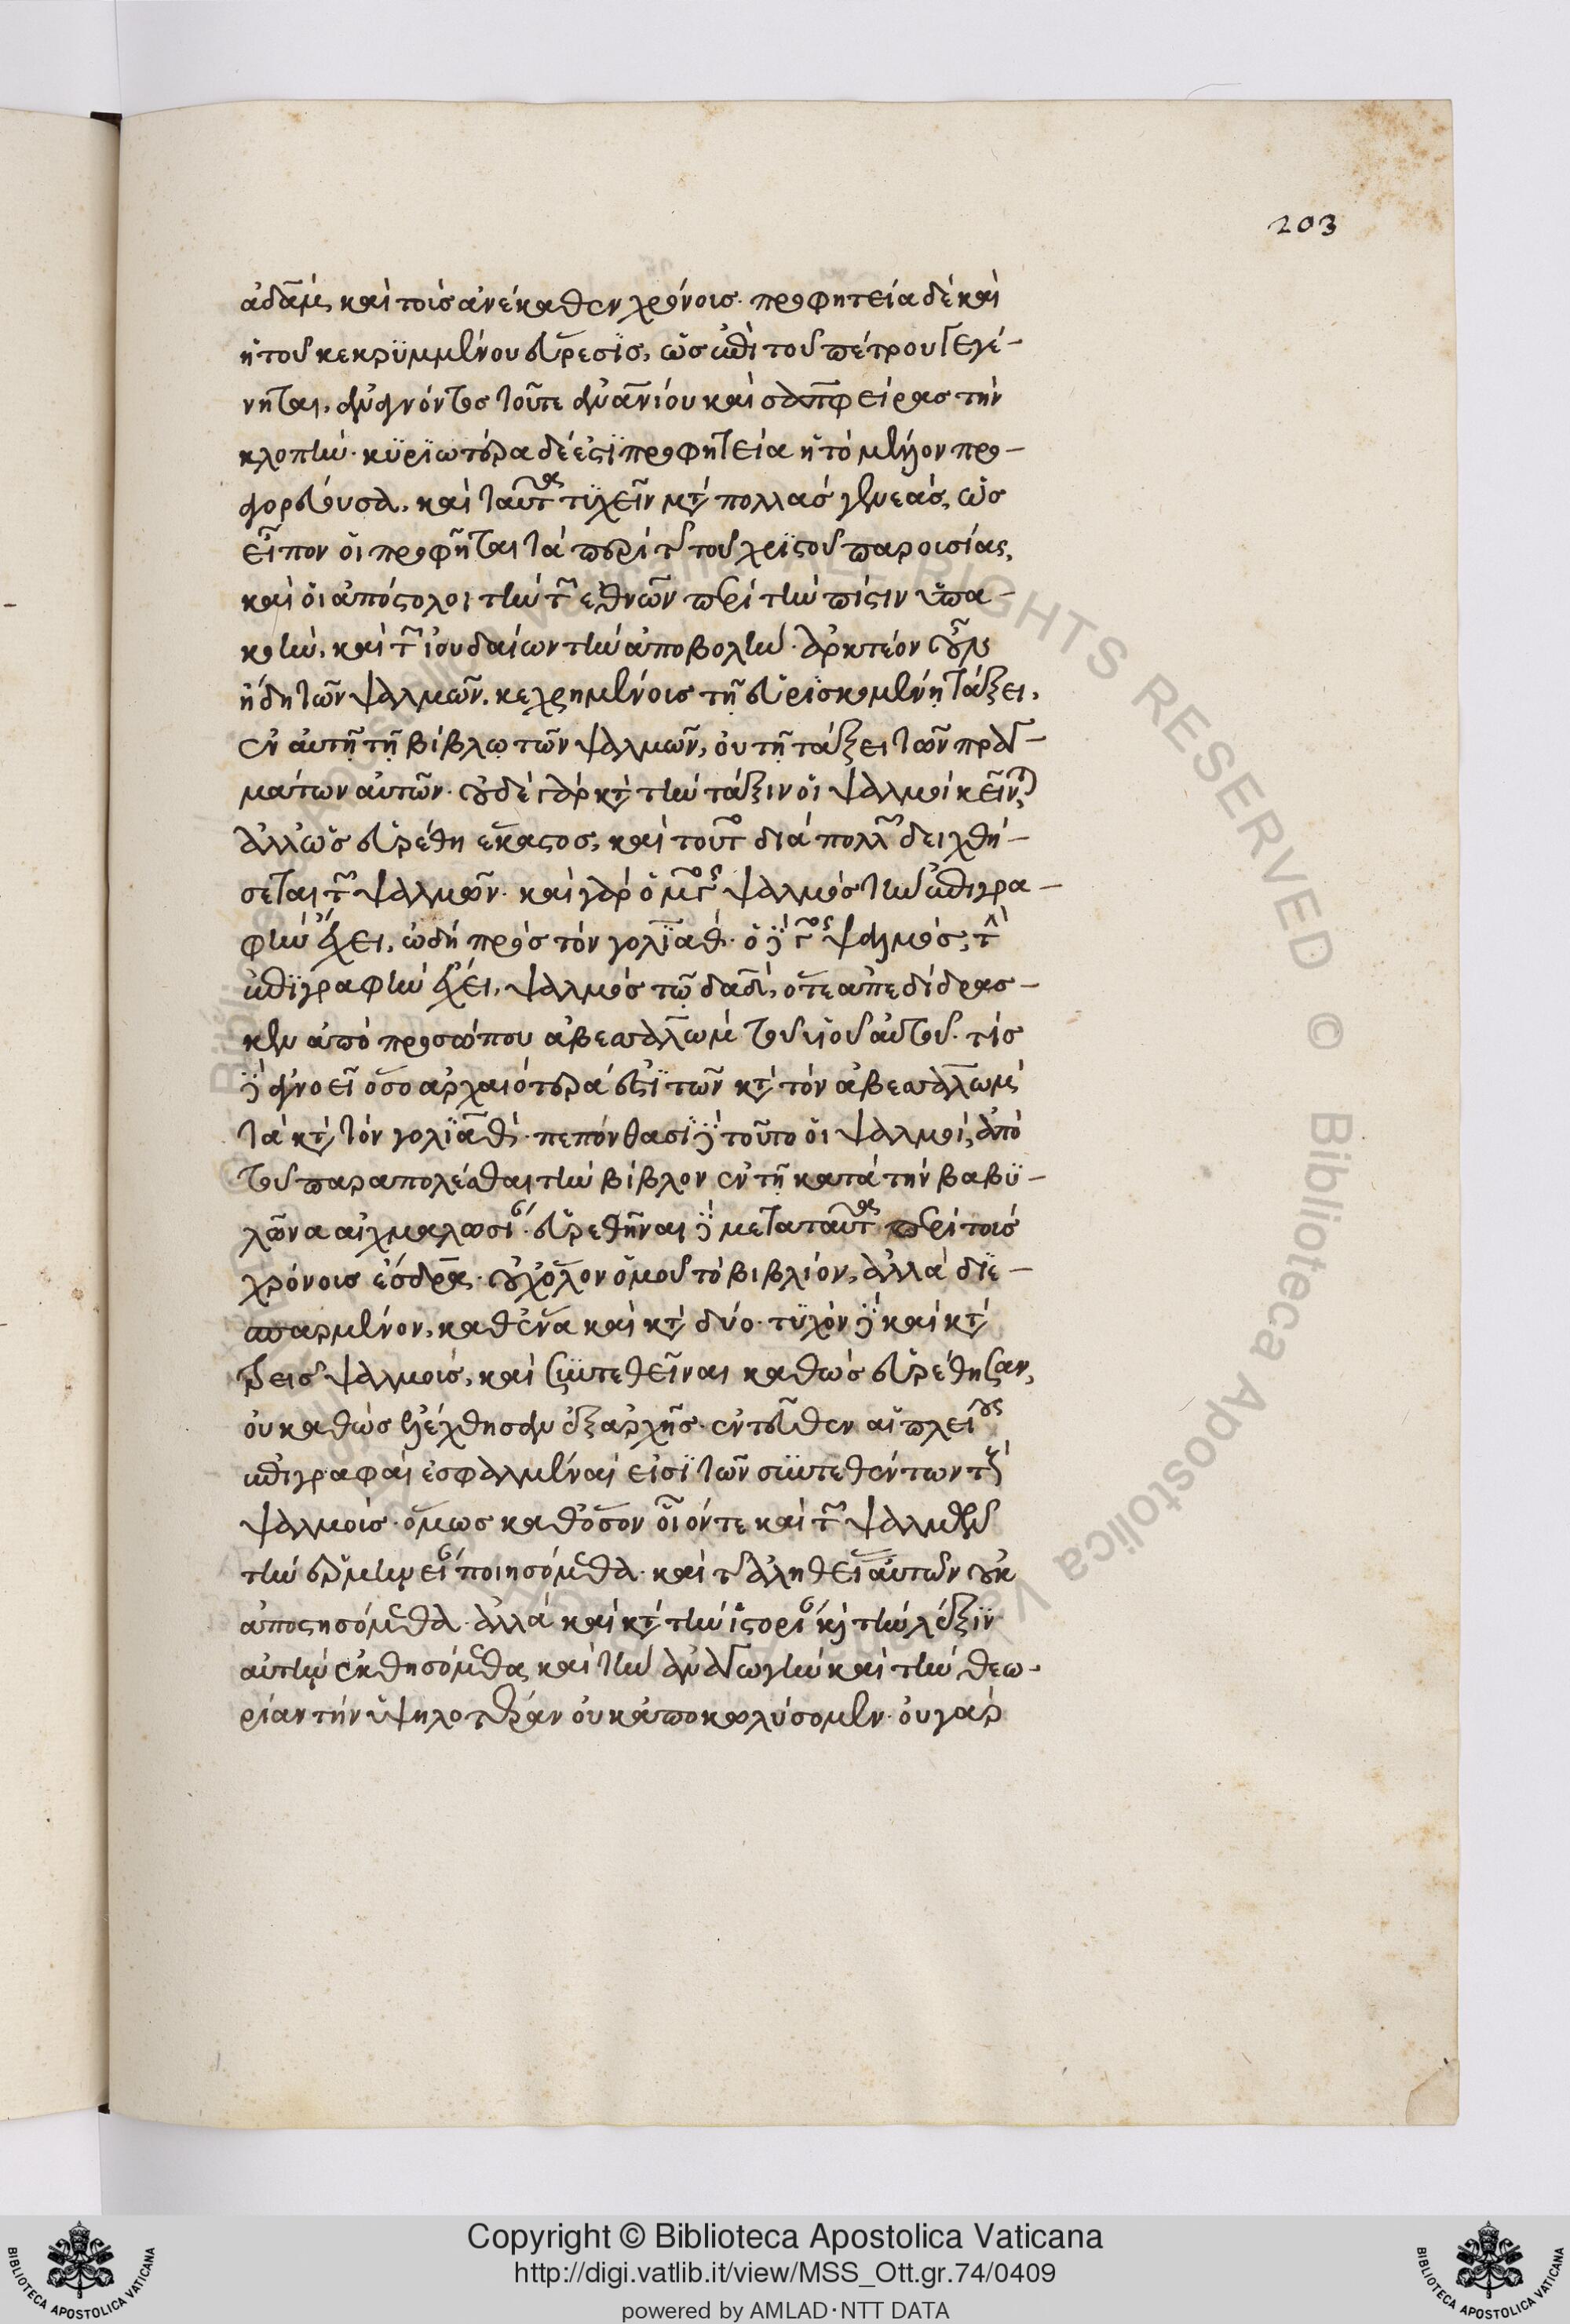 203
ἀδὰμ, καὶ τοῖς ἀνέκαθεν χρόνοις· προφητεία δὲ καὶ
ἡ τοῦ κεκρϋμμένου εὕρεσϊς, ὡς ἐπὶ τοῦ πέτρου γεγέ-
νηται, ἀναγνόντος τοῦτε ἀνανίου καὶ σαπφείρας τὴν
κλοπὴν· κϋρϊωτέρα δέ ἐστϊ προφητεία ἡ τὸ μέλλον προ-
αγορεύουσα, καὶ ταῦτα τϋχεῖν μετὰ πολλὰς γενεὰς, ὡς
εἶπον οἱ προφῆται τὰ περὶ τῆς τοῦ χριστοῦ παρουσίας,
καὶ οἱ ἀπόστολοι τὴν τῶν ἐθνῶν περὶ τὴν πίστιν ὑπα-
κοὴν, καὶ τῶν ἰουδαίων τὴν ἀποβολὴν· ἀρκτέον οὖν
ἤδη τῶν ψαλμῶν, κεχρημένοις τῇ εὑρϊσκομένῃ τάξει,
ἐν αὐτῇ τῇ βίβλῳ τῶν ψαλμῶν, οὐ τῇ τάξει τῶν πραγ-
μάτων αὐτῶν· οὐδὲ γὰρ κατὰ τὴν τάξιν οἱ ψαλμοὶ κεῖνται
ἀλλ' ὡς εὑρέθη ἕκαστος, καὶ τοῦτο διὰ πολλῶν δειχθή-
σεται τῶν ψαλμῶν· καὶ γὰρ ὁ ψαλμὸς τὴν ἐπιγρα-
φὴν ἔχει, ὠδὴ πρὸς τὸν γολϊὰθ· ὁ δὲ γος ψαλμὸς, τὴν
ἐπϊγραφὴν ἔχει, ψαλμὸς τῷ δαδ, ὅτε ἀπεδίδρασ-
κεν ἀπὸ προσώπου ἀβεσαλὼμ τοῦ υἱοῦ αὐτοῦ· τίς
δὲ ἀγνοεῖ ὅσο ἀρχαιότερά ἐστϊ τῶν κατὰ τὸν ἀβεσαλὼμ
τὰ κατὰ τὸν γολϊὰθ· πεπόνθασϊ δὲ τοῦτο οἱ ψαλμοὶ, ἀπὸ
τοῦ παραπολέσθαι τὴν βίβλον ἐν τῇ κατὰ τὴν βαβϋ-
λῶνα αἰχμαλωσίαν· εὑρεθῆναι δὲ μετὰ ταῦτα περὶ τοὺς
χρόνοις ἔσδρα· οὐχ ὅλον ὁμοῦ τὸ βιβλίον, ἀλλὰ δϊε-
σπαρμένον, καθ' ἕνα καὶ κατὰ δύο· τϋχὸν δὲ καὶ κατὰ
τρεῖς ψαλμοὺς, καὶ συντεθεῖναι καθὼς εὑρέθησαν,
οὐ καθὼς ἐλέχθησαν ἐξ ἀρχῆς· ἐντεῦθεν αἱ πλείους
ἐπιγραφαὶ ἐσφαλμέναι εἰσὶ τῶν συντεθέντων τοῖς
ψαλμοῖς· ὅμως καθ' ὅσον οἷόν τε καὶ τῶν ψαλμῶν
τὴν ἑρμηνείαν ποιησόμεθα· καὶ τῆς ἀληθείας αὐτῶν οὐκ
ἀποστησόμεθα· ἀλλὰ καὶ κατὰ τὴν ἱστορίαν καὶ τὴν λέξϊν
αὐτὴν ἐκθησόμεθα, καὶ τὴν ἀναγωγὴν καὶ τὴν θεω-
ρίαν τὴν ὑψηλοτέραν οὐκ ἀποκωλύσομεν· οὐ γὰρ
Copyright © Biblioteca Apostolica Vaticana
http://digi.vatlib.it/view/MSS_Ott.gr.74/0409
powered by AMLAD·NTT DATA